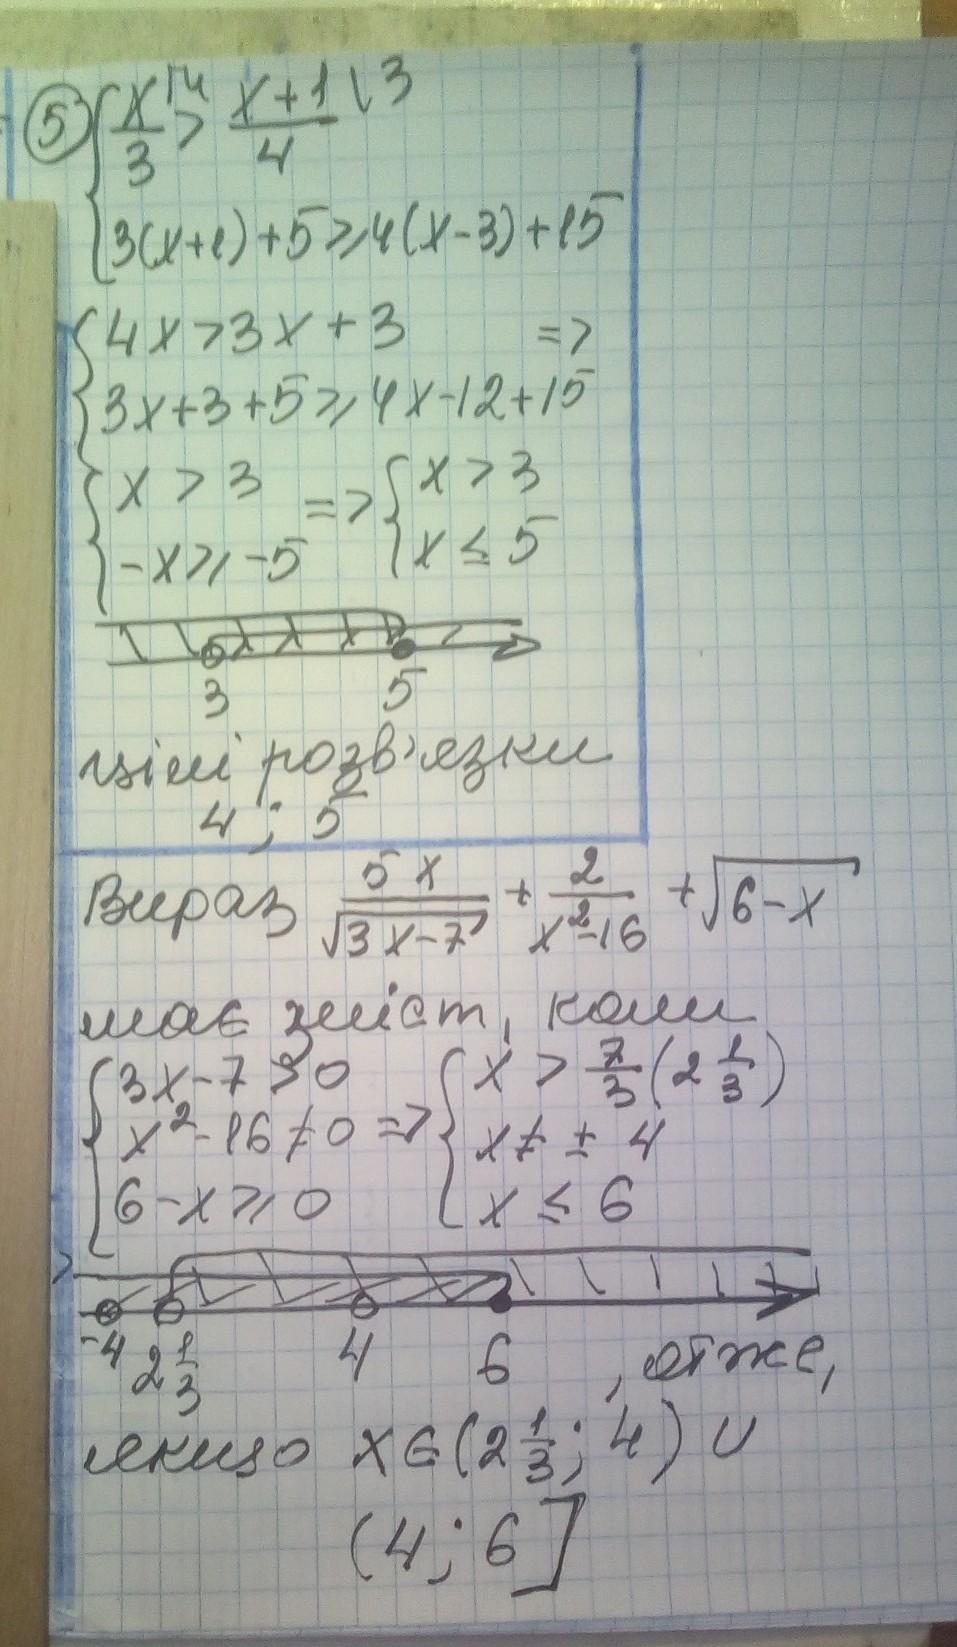 ⑤ { x/3 |4 > (x+1)/4 \3
3(x+1)+5⩾4(x-3)+15
{ 4x>3x+3 =>
3x+3+5⩾4x-12+15
{ x > 3 => { x > 3
-x⩾-5 x ≤ 5
3 5
цілі розв'язки
4; 5
Вираз 5x/√(3x-7) + 2/(x²-16) + √(6-x)
має зміст, коли
{ 3x-7>0 { x > 7/3 (2 1/3)
x²-16≠0 => x ≠ ± 4
6-x⩾0 x ≤ 6
-4 2 1/3 4 6 , отже,
якщо x∈(2 1/3; 4) ∪
(4; 6]